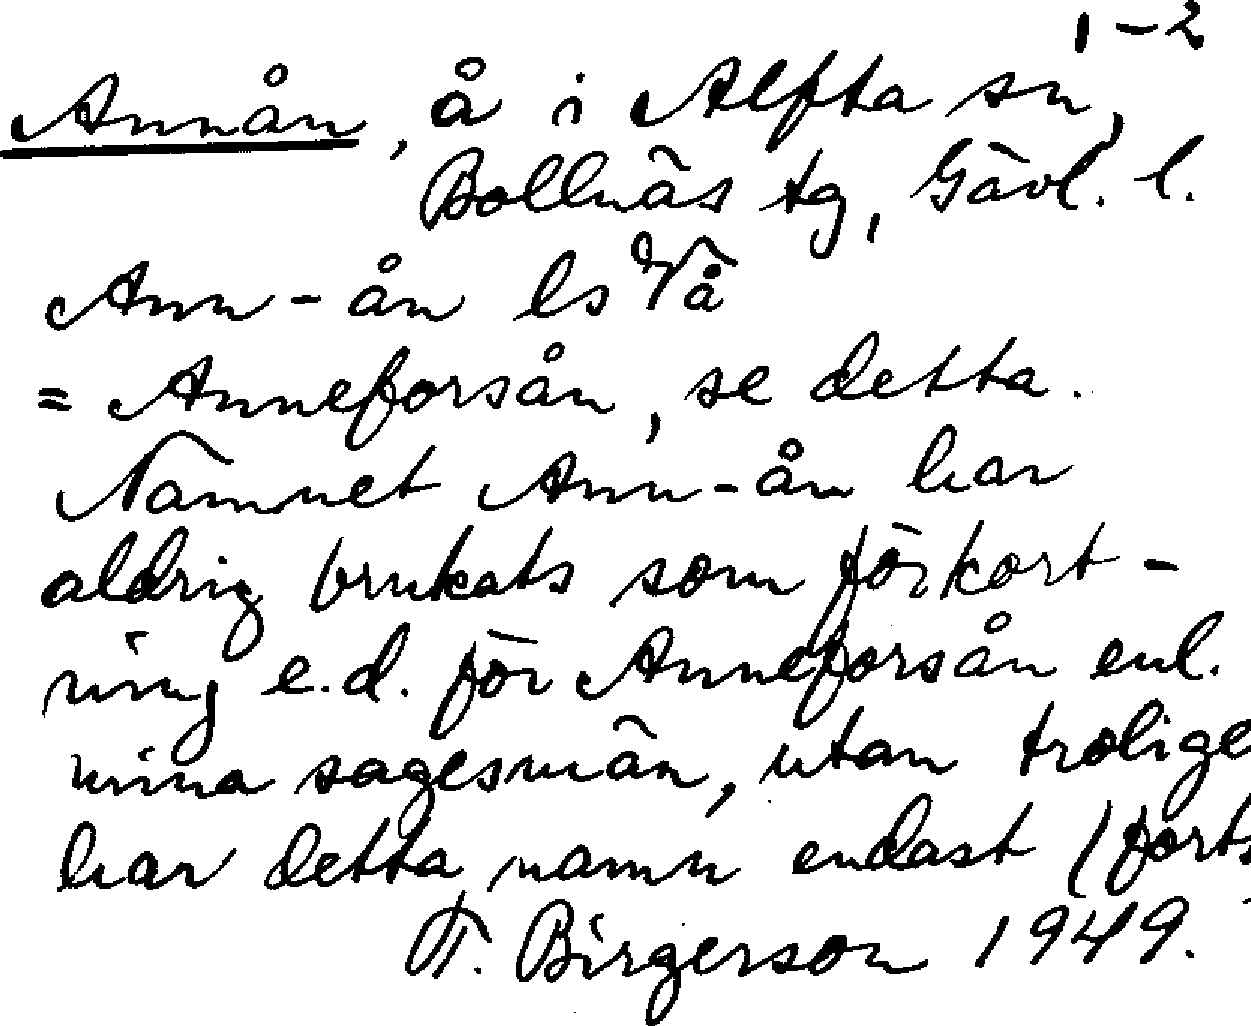 1-2
Annån, å i Alfta sn,
Bollnäs tg, Gävl. l.
Ann-ån ls Vå
= Anneforsån, se detta.
Namnet Ann-ån har
aldrig brukats som förkort-
ning e.d. för Anneforsån enl.
mina sagesmän, utan trolige
har detta namn endast (forts
F. Birgerson 1949.